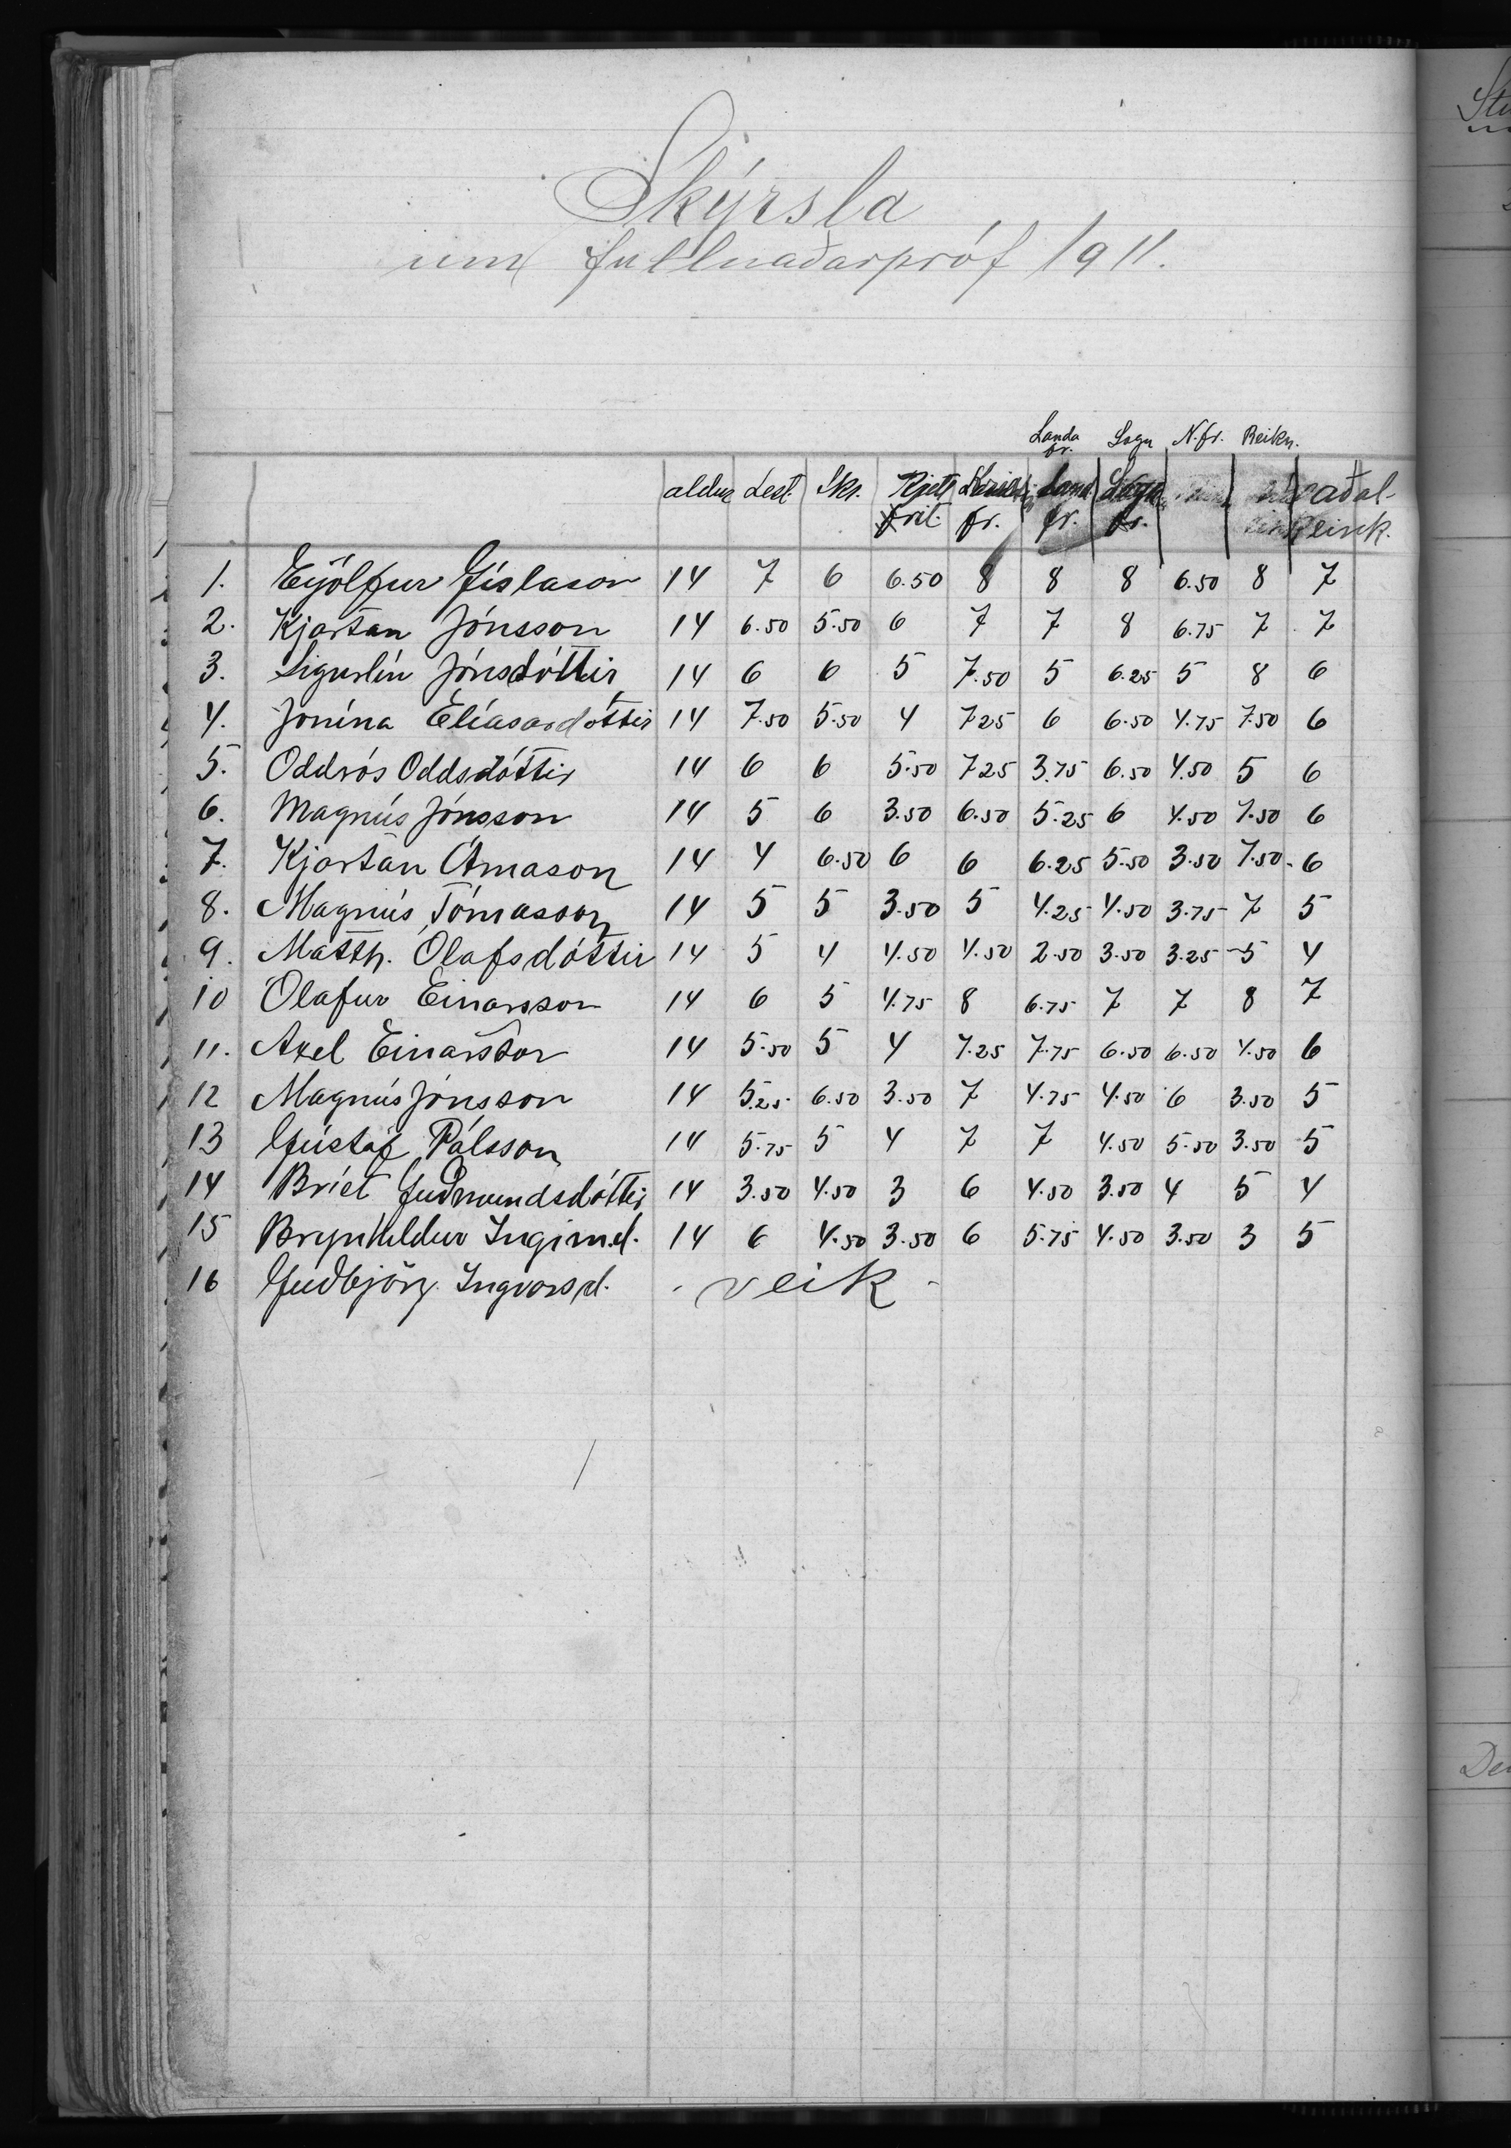 Skýrsla
um fullnaðarpróf 1911.
Landa fr. Sagn N.fr. Reikn.
aldur Lest. Skr. Rjett rit. Krist. fr. Land fr. Sagn fr. aðal- eink.
1. Eyjólfur Gíslason 14 7 6 6.50 8 8 8 6.50 8 7
2. Kjartan Jónsson 14 6.50 5.50 6 7 7 8 6.75 7 7
3. Sigurlín Jónsdóttir 14 6 6 5 7.50 5 6.25 5 8 6
4. Jónína Elíasardóttir 14 7.50 5.50 4 7.25 6 6.50 4.75 7.50 6
5. Oddrós Oddsdóttir 14 6 6 5.50 7.25 3.75 6.50 4.50 5 6
6. Magnús Jónsson 14 5 6 3.50 6.50 5.25 6 4.50 7.50 6
7. Kjartan Árnason 14 4 6.50 6 6 6.25 5.50 3.50 7.50 6
8. Magnús Tómasson 14 5 5 3.50 5 4.25 4.50 3.75 7 5
9. Matth. Ólafsdóttir 14 5 4 4.50 4.50 2.50 3.50 3.25 5 4
10 Ólafur Einarsson 14 6 5 4.75 8 6.75 7 7 8 7
11. Axel Einarsson 14 5.50 5 4 7.25 7.75 6.50 6.50 4.50 6
12 Magnús Jónsson 14 5.25 6.50 3.50 7 4.75 4.50 6 3.50 5
13 Gústaf Pálsson 14 5.75 5 4 7 7 4.50 5.50 3.50 5
14 Bríet Guðmundsdóttir 14 3.50 4.50 3 6 4.50 3.50 4 5 4
15 Brynhildur Ingim.d. 14 6 4.50 3.50 6 5.75 4.50 3.50 3 5
16 Guðbjörg Ingvarsd. - veik -